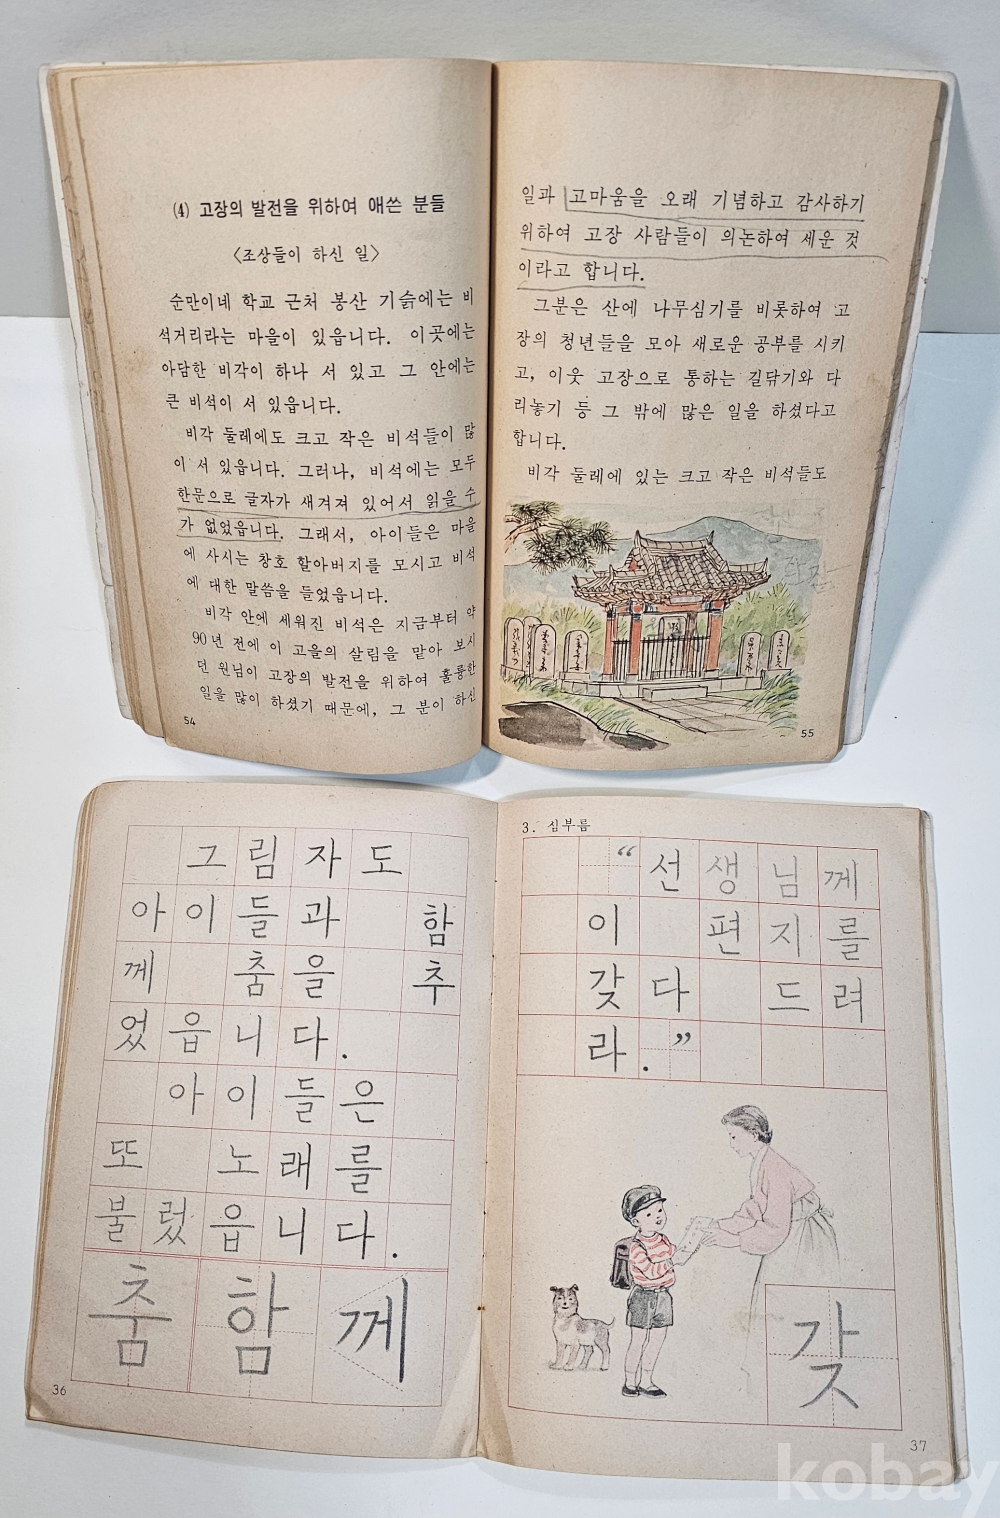 (4) 고장의 발전을 위하여 애쓴 분들
<조상들이 하신 일>
순만이네 학교 근처 봉산 기슭에는 비
석거리라는 마을이 있읍니다. 이곳에는
아담한 비각이 하나 서 있고 그 안에는
큰 비석이 서 있읍니다.
비각 둘레에도 크고 작은 비석들이 많
이 서 있읍니다. 그러나, 비석에는 모두
한문으로 글자가 새겨져 있어서 읽을 수
가 없었읍니다. 그래서, 아이들은 마을
에 사시는 창호 할아버지를 모시고 비석
에 대한 말씀을 들었읍니다.
비각 안에 세워진 비석은 지금부터 약
90년 전에 이 고을의 살림을 맡아 보시
던 원님이 고장의 발전을 위하여 훌륭한
일을 많이 하셨기 때문에, 그 분이 하신
54
일과 고마움을 오래 기념하고 감사하기
위하여 고장 사람들이 의논하여 세운 것
이라고 합니다.
그분은 산에 나무심기를 비롯하여 고
장의 청년들을 모아 새로운 공부를 시키
고, 이웃 고장으로 통하는 길닦기와 다
리놓기 등 그 밖에 많은 일을 하셨다고
합니다.
비각 둘레에 있는 크고 작은 비석들도
55
그림자도
아이들과 함
께 춤을 추
었읍니다.
아이들은
또 노래를
불렀읍니다.
춤 함 께
36
3. 심부름
“선생님께
이 편지를
갖다 드려
라.”
갖
37
kobay